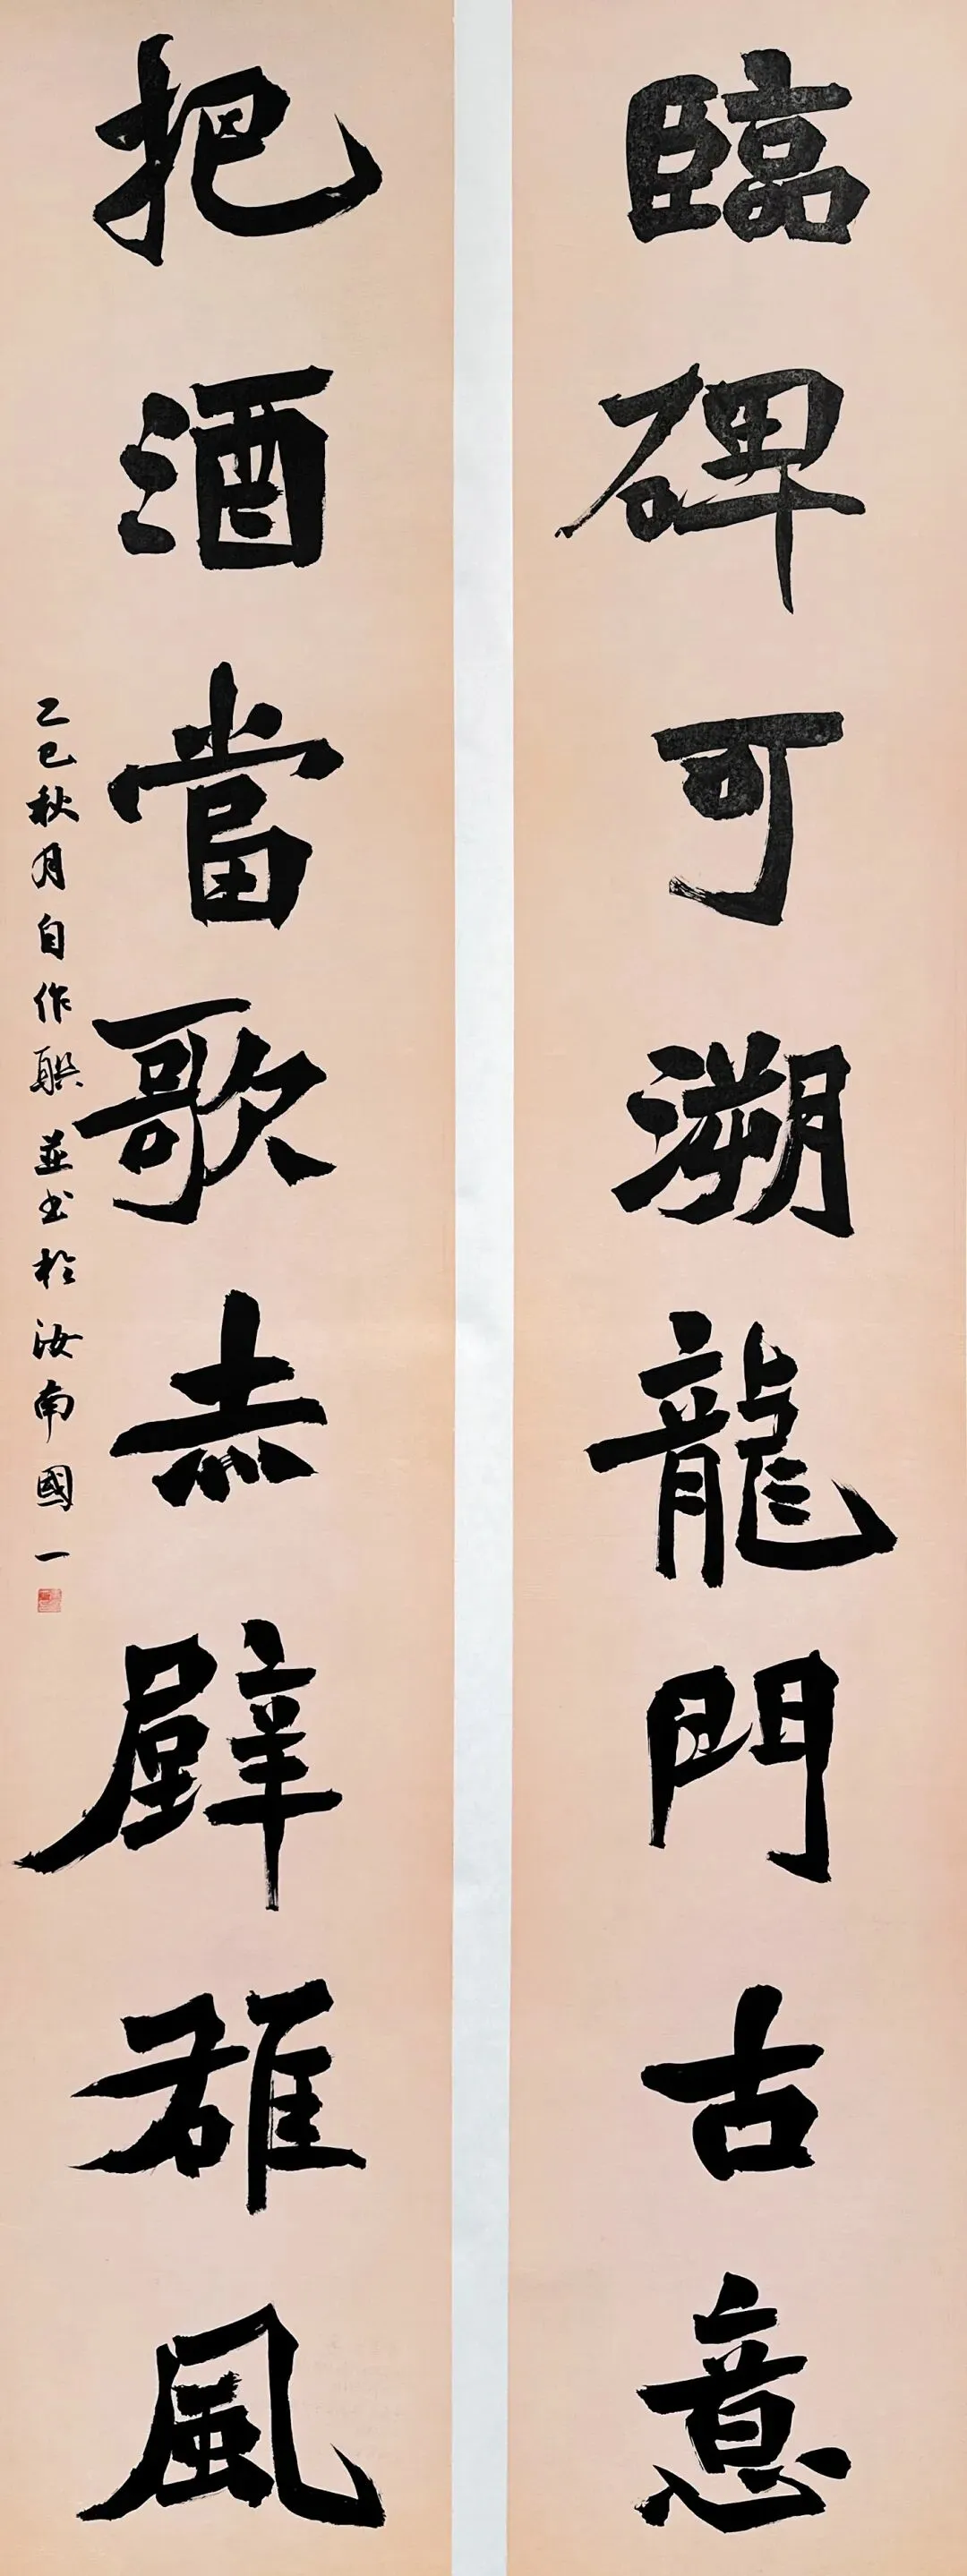 臨碑可溯龍門古意
把酒當歌赤壁雄風
乙巳秋月自作聯並书於汝南國一